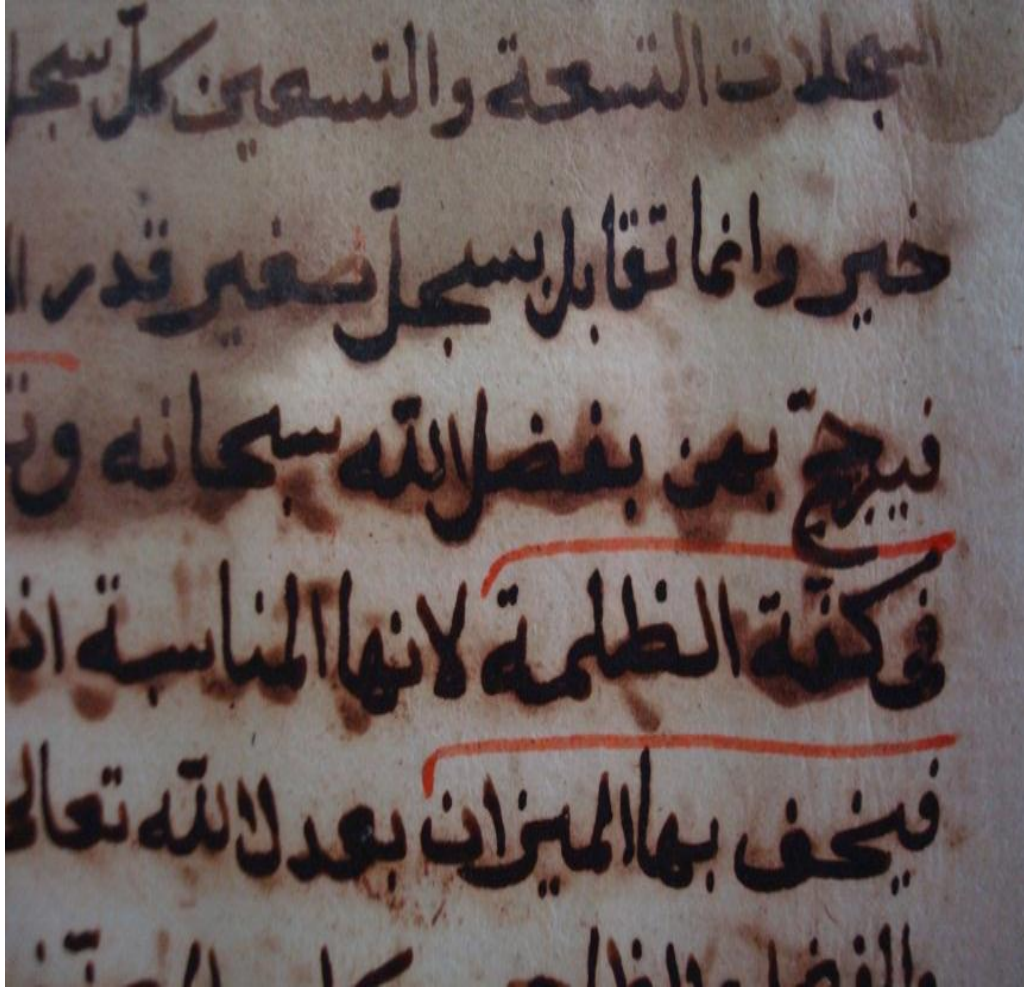 السجلات التسعة والتسعين كلّ سجل
خير وانما تقابل بسجلّ صغير قدر
فيرجّح بهن بفضل الله سبحانه
فى كفّة الظلمة لانها المناسبة
فيخف بها الميزان بعدل الله تعالى